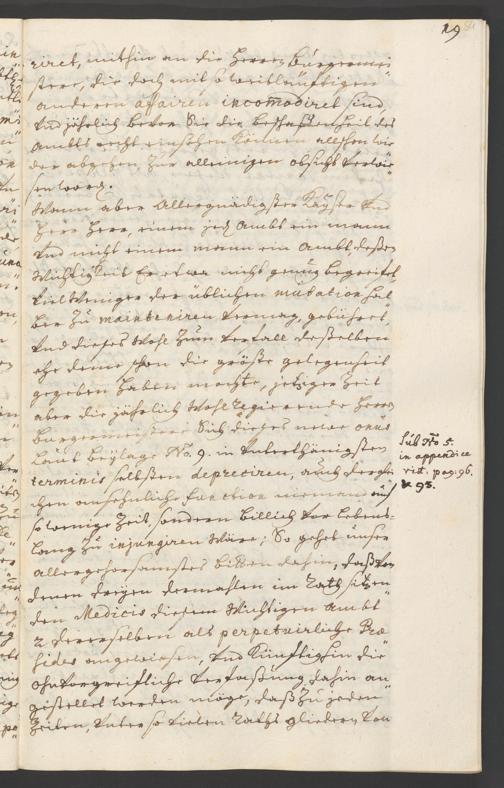 19
riret, mithin an die Herren Burgermei
stere, die doch mit weitläuffigen
anderen affairen incommodiret sind
und jährlich bevor Sie die beschaffenheit des
Ambts recht einsehen können
der abgehen, zur alleinigen obsicht verwie
sen word.
Wann aber Allergnädigster Kayser und
Herr Herr, einem jed Ambt ein mann
und nicht einem mann ein Ambt, deßen
Wichtigkeit Er etwa nicht genug begreifet,
viel weniger der üblichen mutation hal
ber zu mainteniren vermag, gebühret,
und dieses wohl zum verfall deßelben
ehe deme schon die gröste gelegenheit
gegeben haben mochte, jetziger Zeit
aber die jährlich Wohl regierende Herren
Burgermeistere Sich dieses neue onus
laut beylage No. 9. in unterthänigsten
terminis selbsten depreciren, auch derglei
chen ansehnliche function niemand auf
so wenige Zeit, sondern billich vor lebens-
lang zu injungiren wäre; So gehet unser
allergehorsamstes bitten dahin, daß von
denen dreyen dermahlen im Rath sitzen
den Medicis diesem Wichtigen Ambt
2 derenselben als perpetuirliche Præ
sides angewiesen, und künfftighin die
ohnvorgreifliche verfaßung dahin an
gestellet werden möge, daß zu jeden
Zeiten, unter so vielen Raths gliedern von
sub No 5.
in appendice
pag. 96.
& 93.